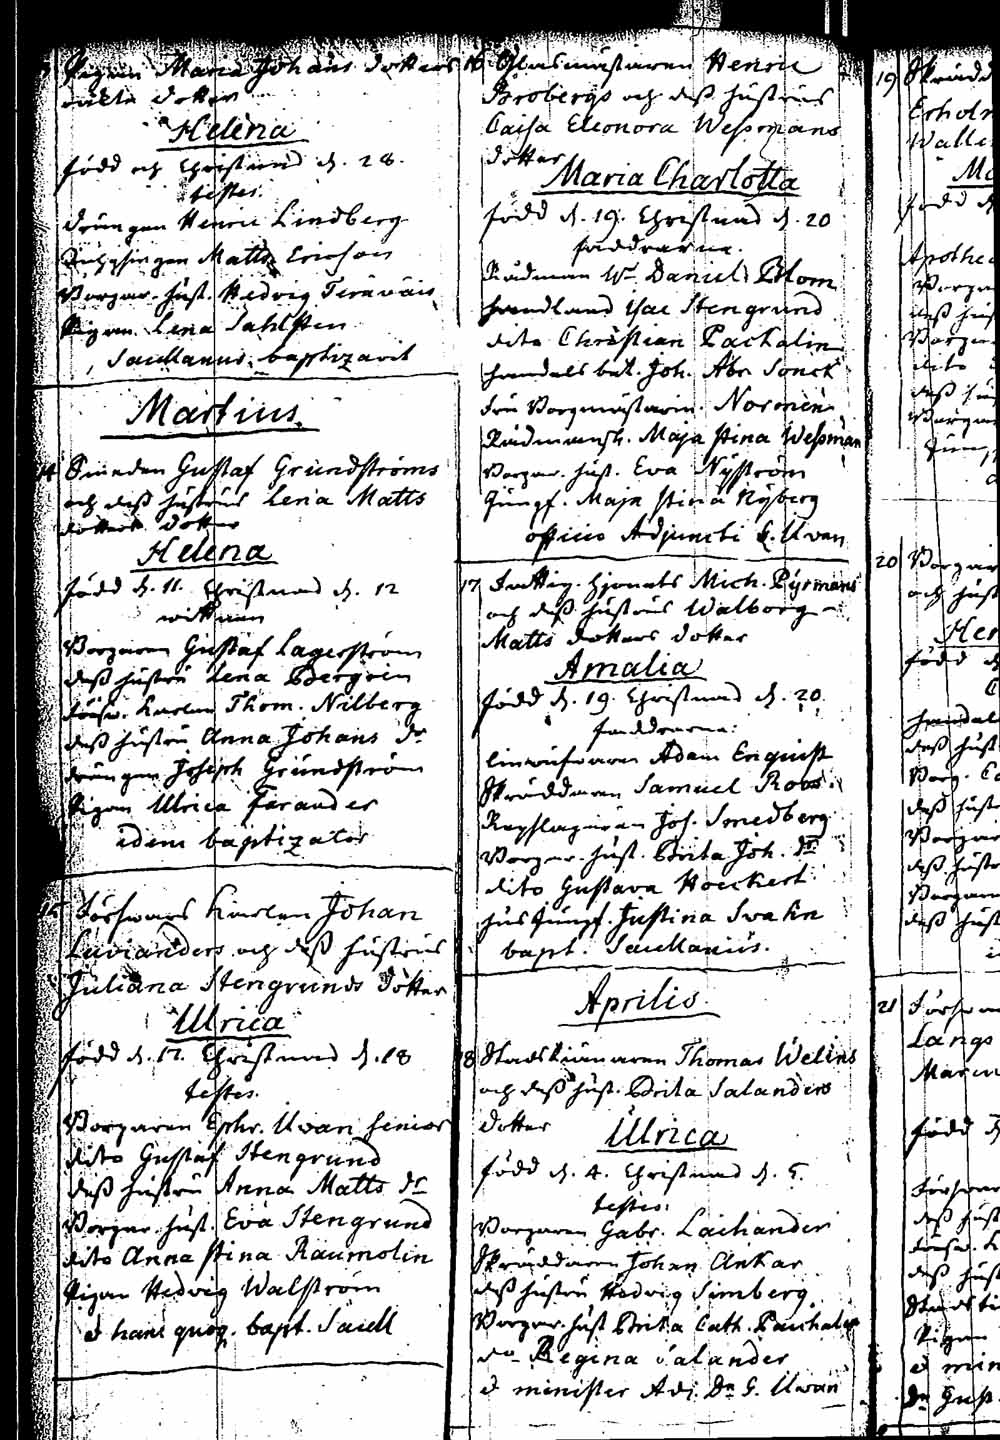 Pigan Maria Johans dotters
oäkta dotter
Helena
född och Christnad d. 28.
testes.
drängen Henric Lindberg
Matts Ericson
Borgar. hust. Hedvig Teräväin
Pigan Lena Sahlsten
Saxellanus baptizavit
Martius.
14 Smeden Gustaf Grundströms
och dess hustrus Lena Matts
dotters dotter
Helena
född d. 11. Christnad d. 12
wittnen
Borgaren Gustaf Lagerström
dess hustru Lena Bergvin
försw. karlen Thom. Nilberg
dess hustru Anna Johans dr
drängen Joseph Grundström
Pigan Ulrica Farander
idem baptizator
15 Försvars karlen Johan
Luvianders och dess hustrus
Juliana Stengrunds dotter
Ulrica
född d. 17. Christnad d. 18
testes.
Borgaren Ephr. Uvan senior
dito Gustaf Stengrund
dess hustru Anna Matts dr
Borgar. hust. Eva Stengrund
dito Anna Stina Raumolin
Pigan Hedvig Walström
hanc quoq. bapt. Saxell
16 Glasmästaren Henric
Brobergs och dess hustrus
Caisa Eleonora Wessmans
dotter
Maria Charlotta
född d. 19. Christnad d. 20
faddrarne.
Rådman Wr Daniel Blom
handland Isac Stengrund
dito Christian Pachalin
handels bet. Joh. Abr. Sonck
fru Borgmästarin. Normén
Rådmansh. Maja Stina Wessman
Borgar. hust. Eva Nyström
Jungf. Maja Stina Nyberg
officio Adjuncti G. Uvan
17 Fattig. hjonets Mich. Pyrmans
och dess hustrus Walborg
Matts dotters dotter
Amalia
född d. 19. Christnad d. 20.
faddrarne:
Adam Enquist
Skräddaren Samuel Roos.
Repslagaren Joh. Smedberg
Borgar. hust. Brita Joh. dr
dito Gustava Hoeckert
hus Jungf. Justina Svahn
bapt. Saxellanius.
Aprilis
18 Thomas Welins
och dess hust. Brita Salanders
dotter
Ulrica
född d. 4. Christnad d. 5.
testes.
Borgaren Gabr. Laihander
Skräddaren Johan Ankar
dess hustru Hedvig Simberg.
Borgar. hust Brita Cath. Pachalin
do Regina Salander
minister Adj. Dn G. Uvan
19 Skrädd
Erholm
Walle
Ma
född d
Apothec
Borgar
dess hus
Borgar
dito
Borgar
Jung
20 Borgar
och hust
Hen
född d
handel
dess hust
Borg. Ca
dess hust
Borgar
dess hustr
Borgar
dess hust
21 Försva
Längs
Maria
född d
Försvar
dess hust
försw. k
dess hust
Pigan
min
Dn Gust.